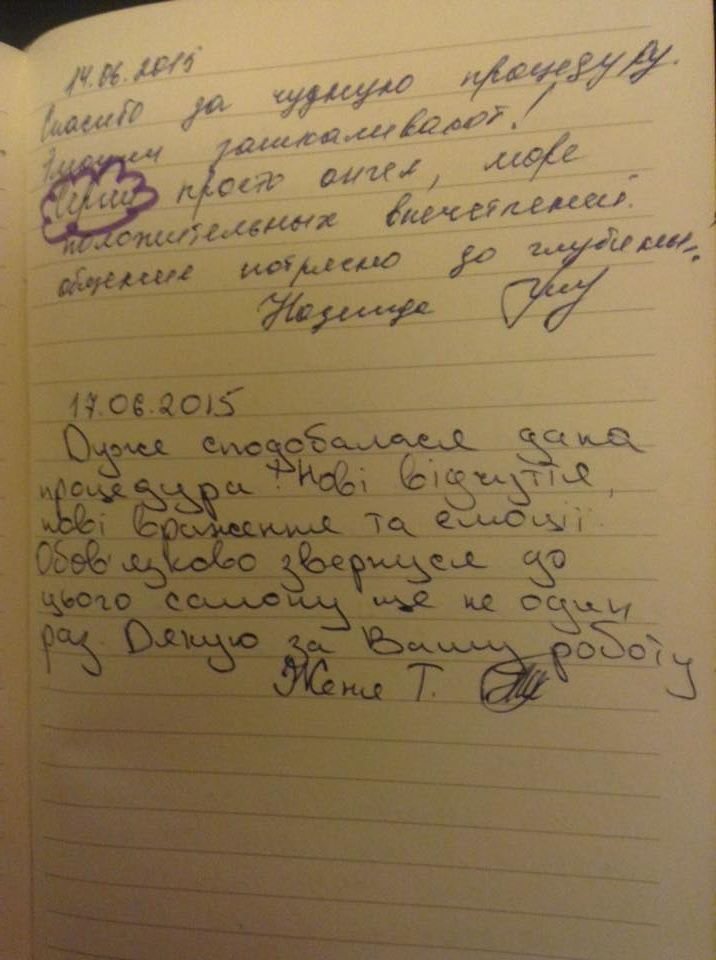 14.06.2015
Спасибо за чудную процедуру.
Эмоции зашкаливают!
просто ангел, море
положительных впечетлений.
общение потрясно до глубины.
Надежда
17.06.2015
Дуже сподобалася дана
процедура! Нові відчуття,
нові враження та емоції.
Обов'язково звернуся до
цього салону ще не один
раз. Дякую за Вашу роботу
Женя Т.